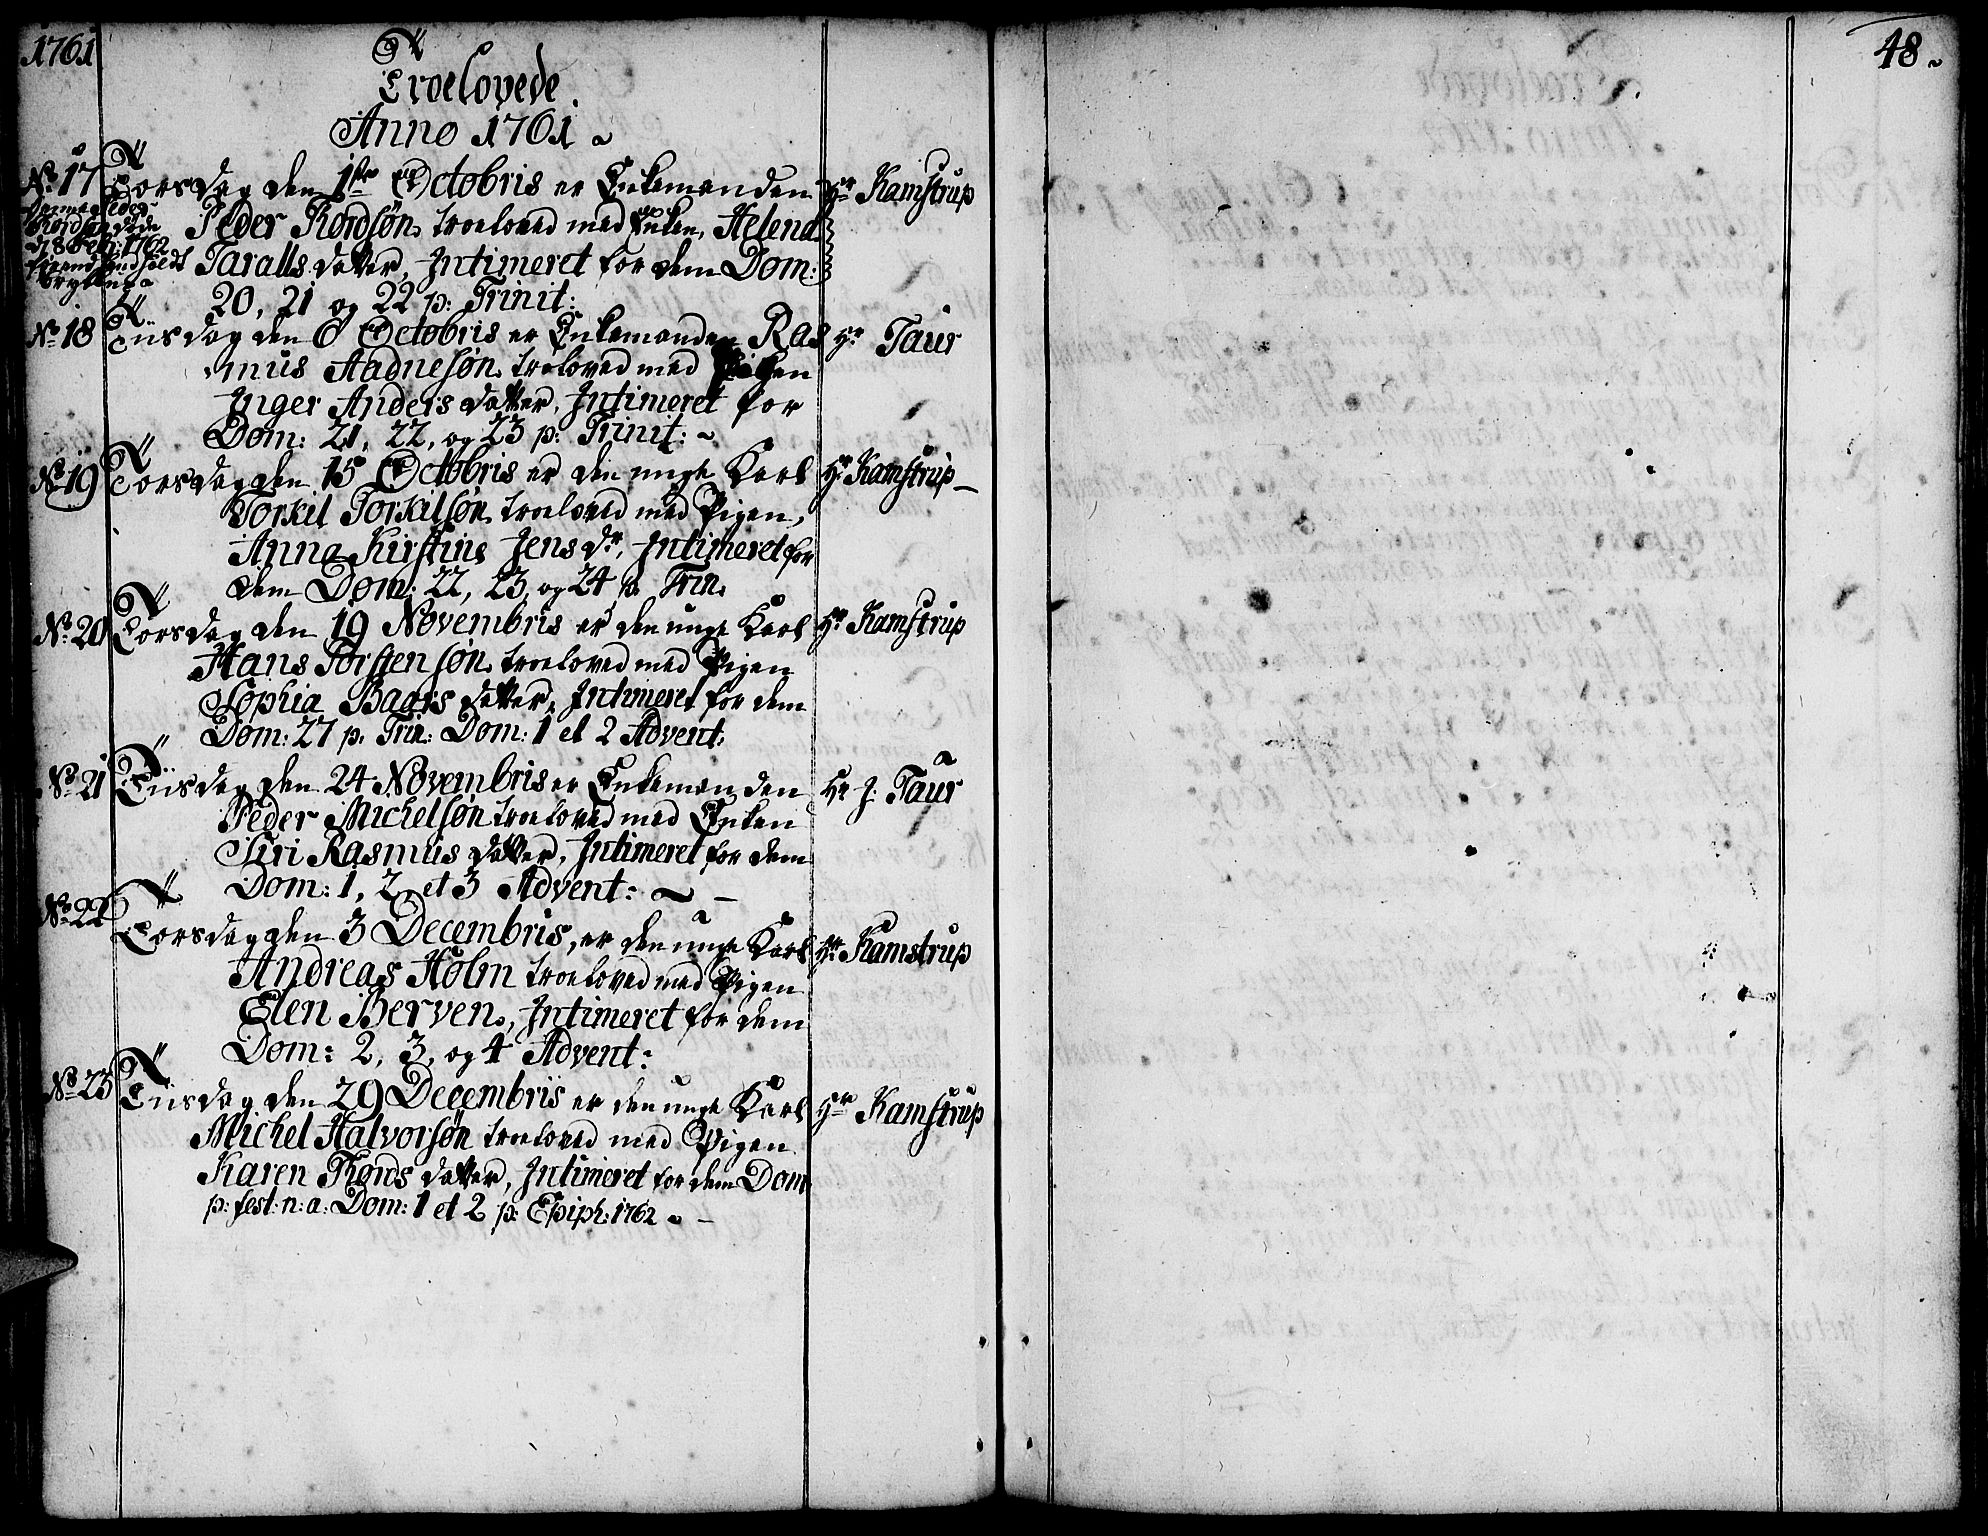 1761
Troelovede
Anno 1761
48
No 17 Torsdag den 1ste Octobris er Enkemanden Hr Kamstrup
Denne Peder
Thordsøn døde
d 8 Feb: 1762
Peder Thordsøn troeloved med Enken, Helena
Taralls datter, Intimeret for dem Dom:
20, 21 og 22 p: Trinit:
No 18 Tiisdag den 6 Octobris er Enkemanden Ras Hr Taur
mus Aadnesøn troeloved med Pigen
Inger Anders datter, Intimeret for
Dom: 21, 22, og 23 p: Trinit:
No 19 Torsdag den 15 Octobris er den unge Karl Hr Kamstrup
Torkil Torkilsøn troeloved med Pigen,
Anna Kirstine Jens dr, Intimeret for
dem Dom: 22, 23, og 24 p. Trin.
No 20 Torsdag den 19 Novembris er den unge Karl Hr Kamstrup
Hans Torstensøn troeloved med Pigen
Sophia Baars datter, Intimeret for dem
Dom: 27 p. Trin: Dom: 1 et 2 Advent:
No 21 Tiisdag den 24 Novembris er Enkemanden Hr J. Taur
Peder Michelsøn troeloved med Enken
Siri Rasmus datter, Intimeret for dem
Dom: 1, 2, et 3 Advent:
No 22 Torsdag den 3 Decembris, er den unge Karl Hr Kamstrup
Andreas Holm troeloved med Pigen
Elen Berven, Intimeret for dem
Dom: 2, 3, og 4 Advent:
No 23 Tiisdag den 29 Decembris er den unge Karl Hr Kamstrup
Michel Halvorsøn troeloved med Pigen
Karen Thords datter, Intimeret for dem Dom
p: fest: n: a: Dom: 1 et 2 p: Epiph: 1762